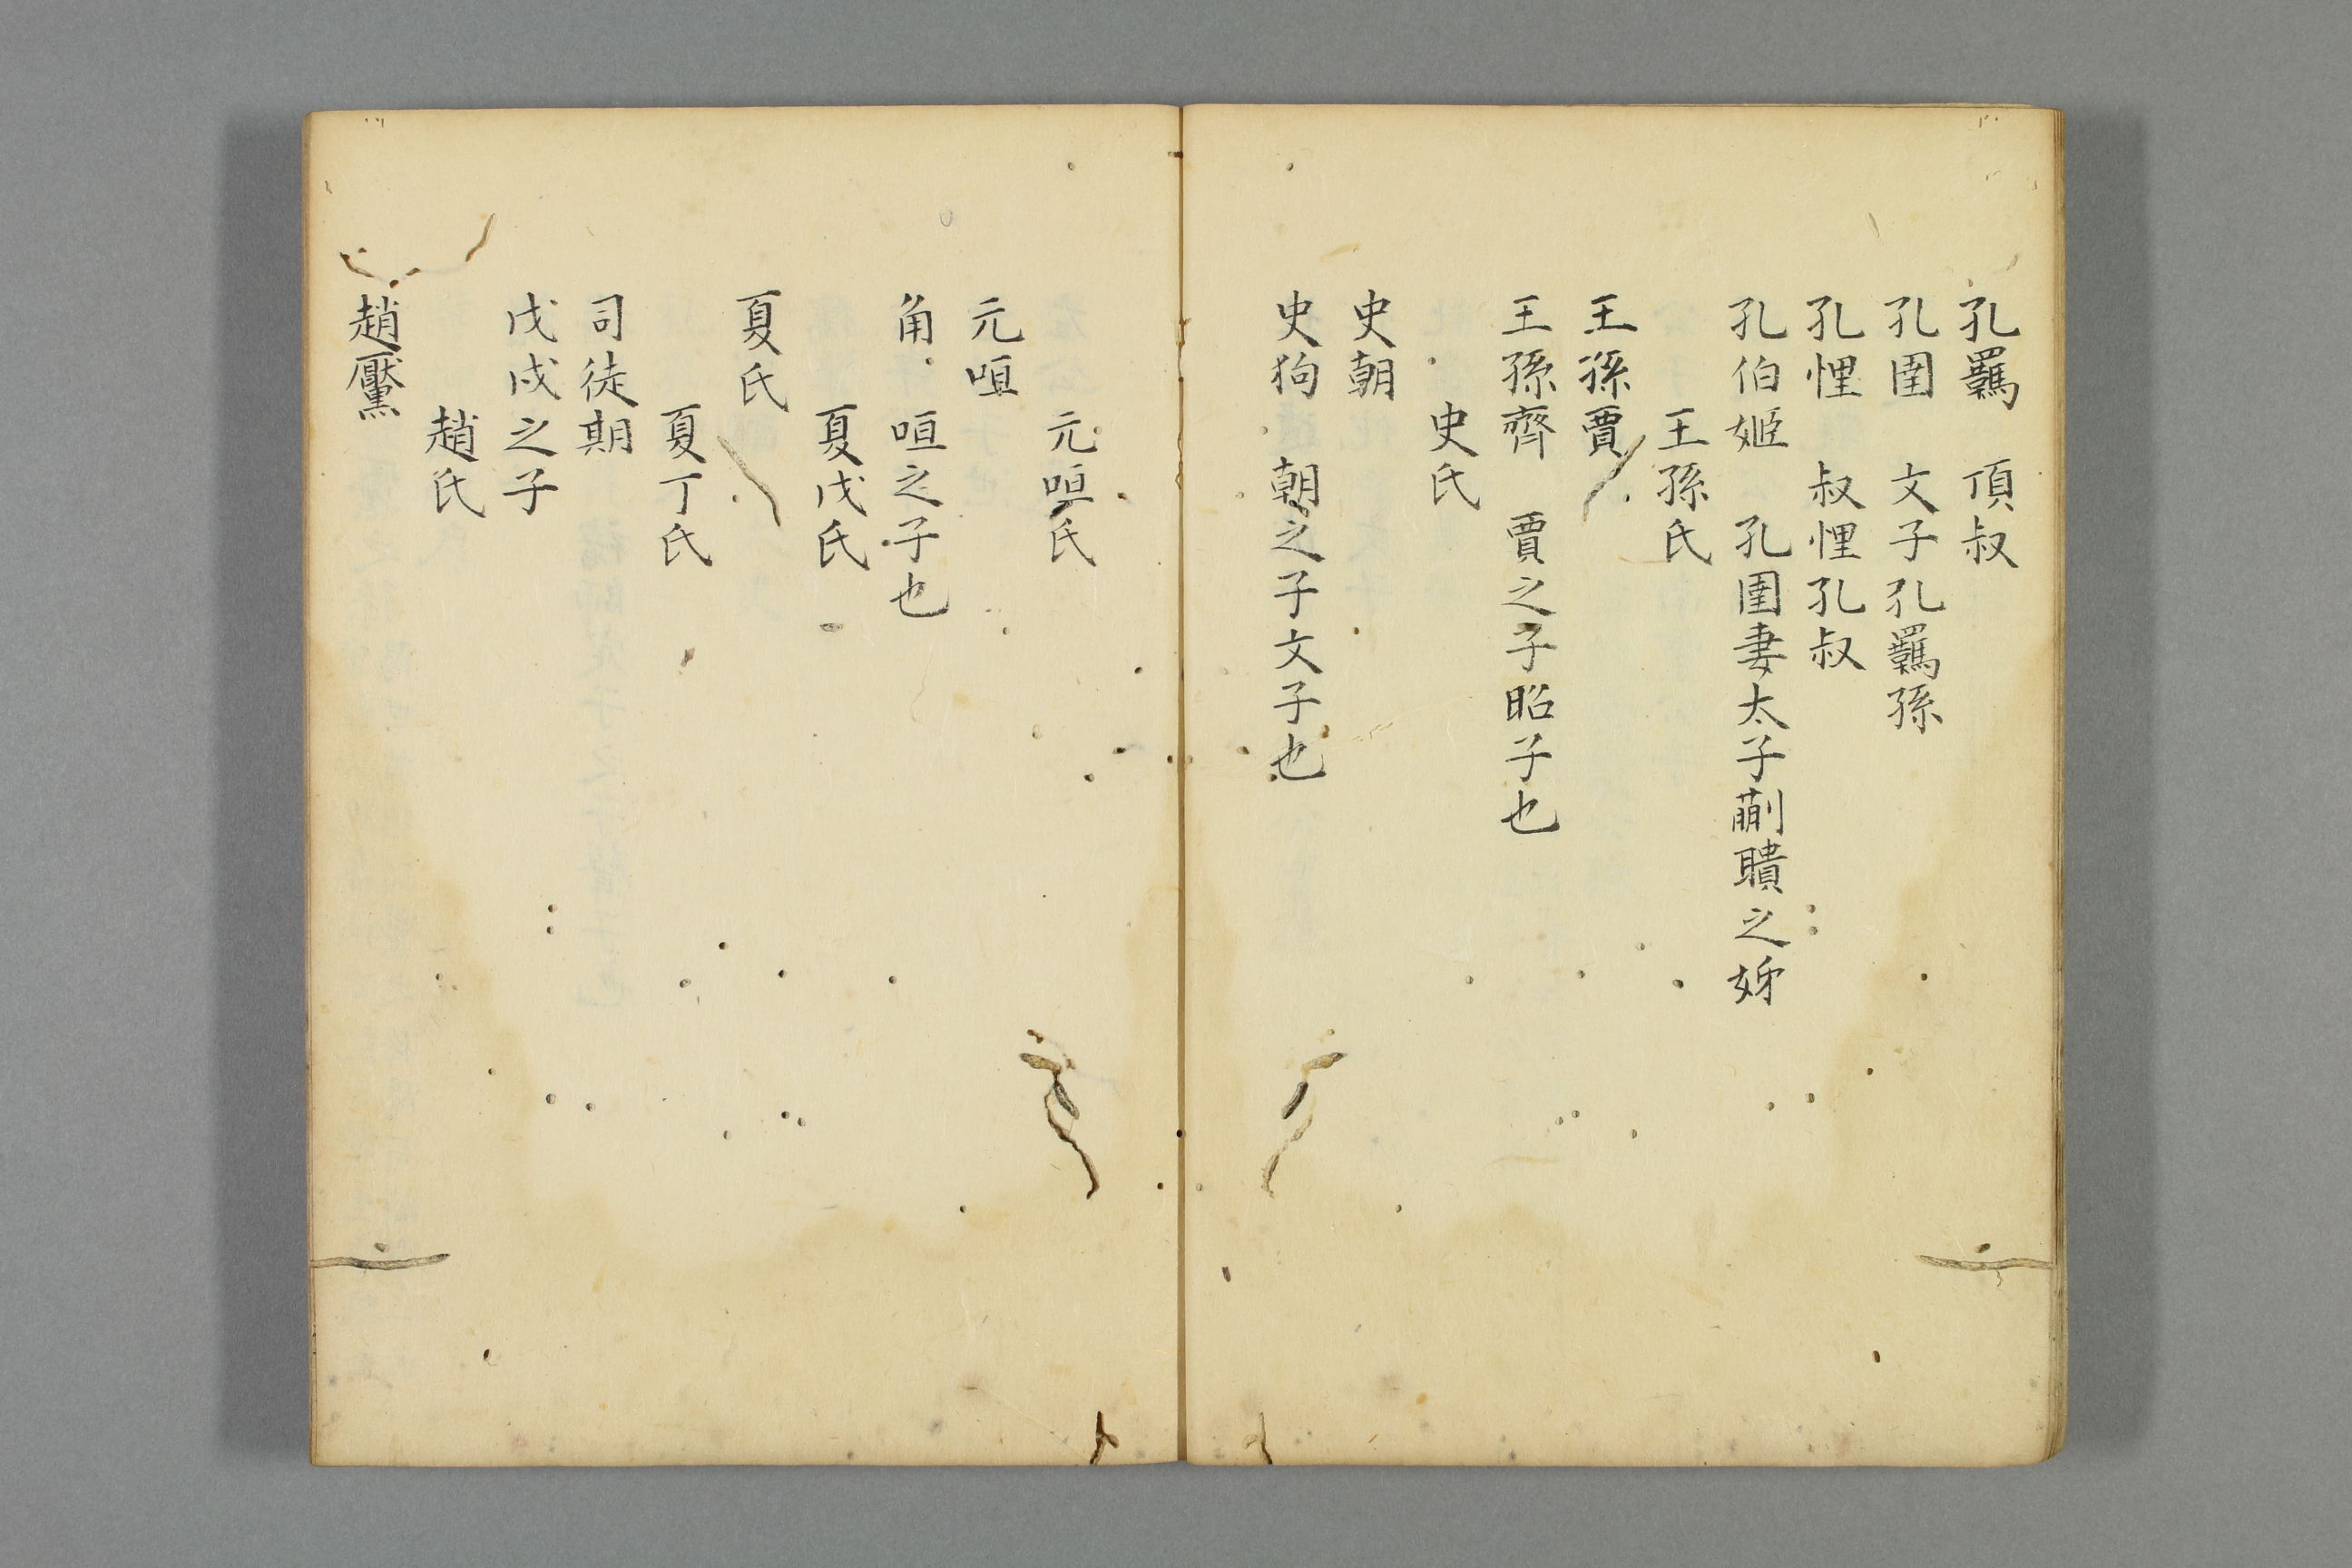 孔羈　頂叔
孔圉　文子孔羈孫
孔悝　叔悝孔叔
孔伯姬　孔圉妻太子蒯聵之姊
王孫氏
王孫賈
王孫齊　賈之子昭子也
史氏
史朝
史狗　朝之子文子也
元咺氏
元咺
角　咺之子也
夏戊氏
夏氏
夏丁氏
司徒期
戊戌之子
趙氏
趙黶